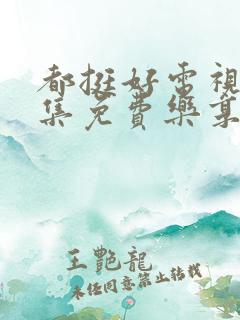 都挺好電視
集免費樂享
王艷龍
未經同意禁止轉載